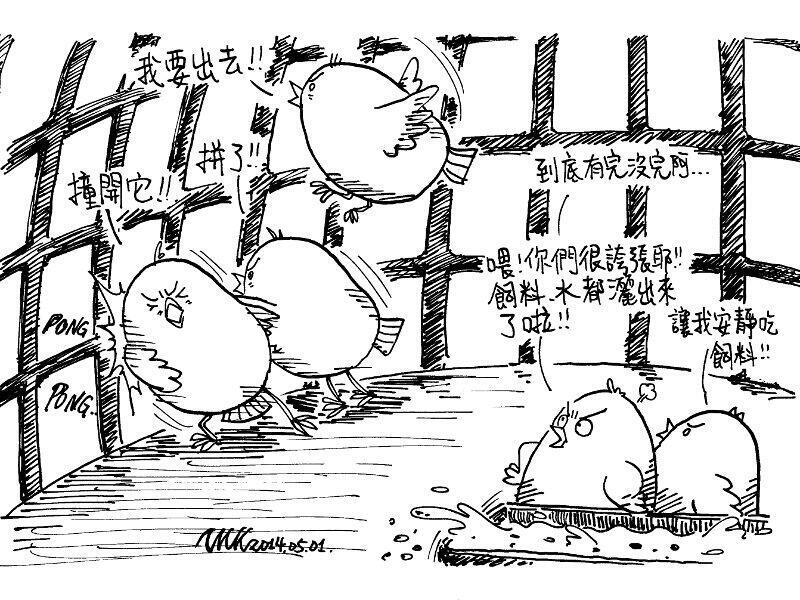 我要出去!!
拼了!!
撞開它!!
PONG
PONG..
到底有完沒完阿...
喂!你們很誇張耶!!
飼料、水都灑出來
了啦!!
讓我安靜吃
飼料!!
2014.05.01.